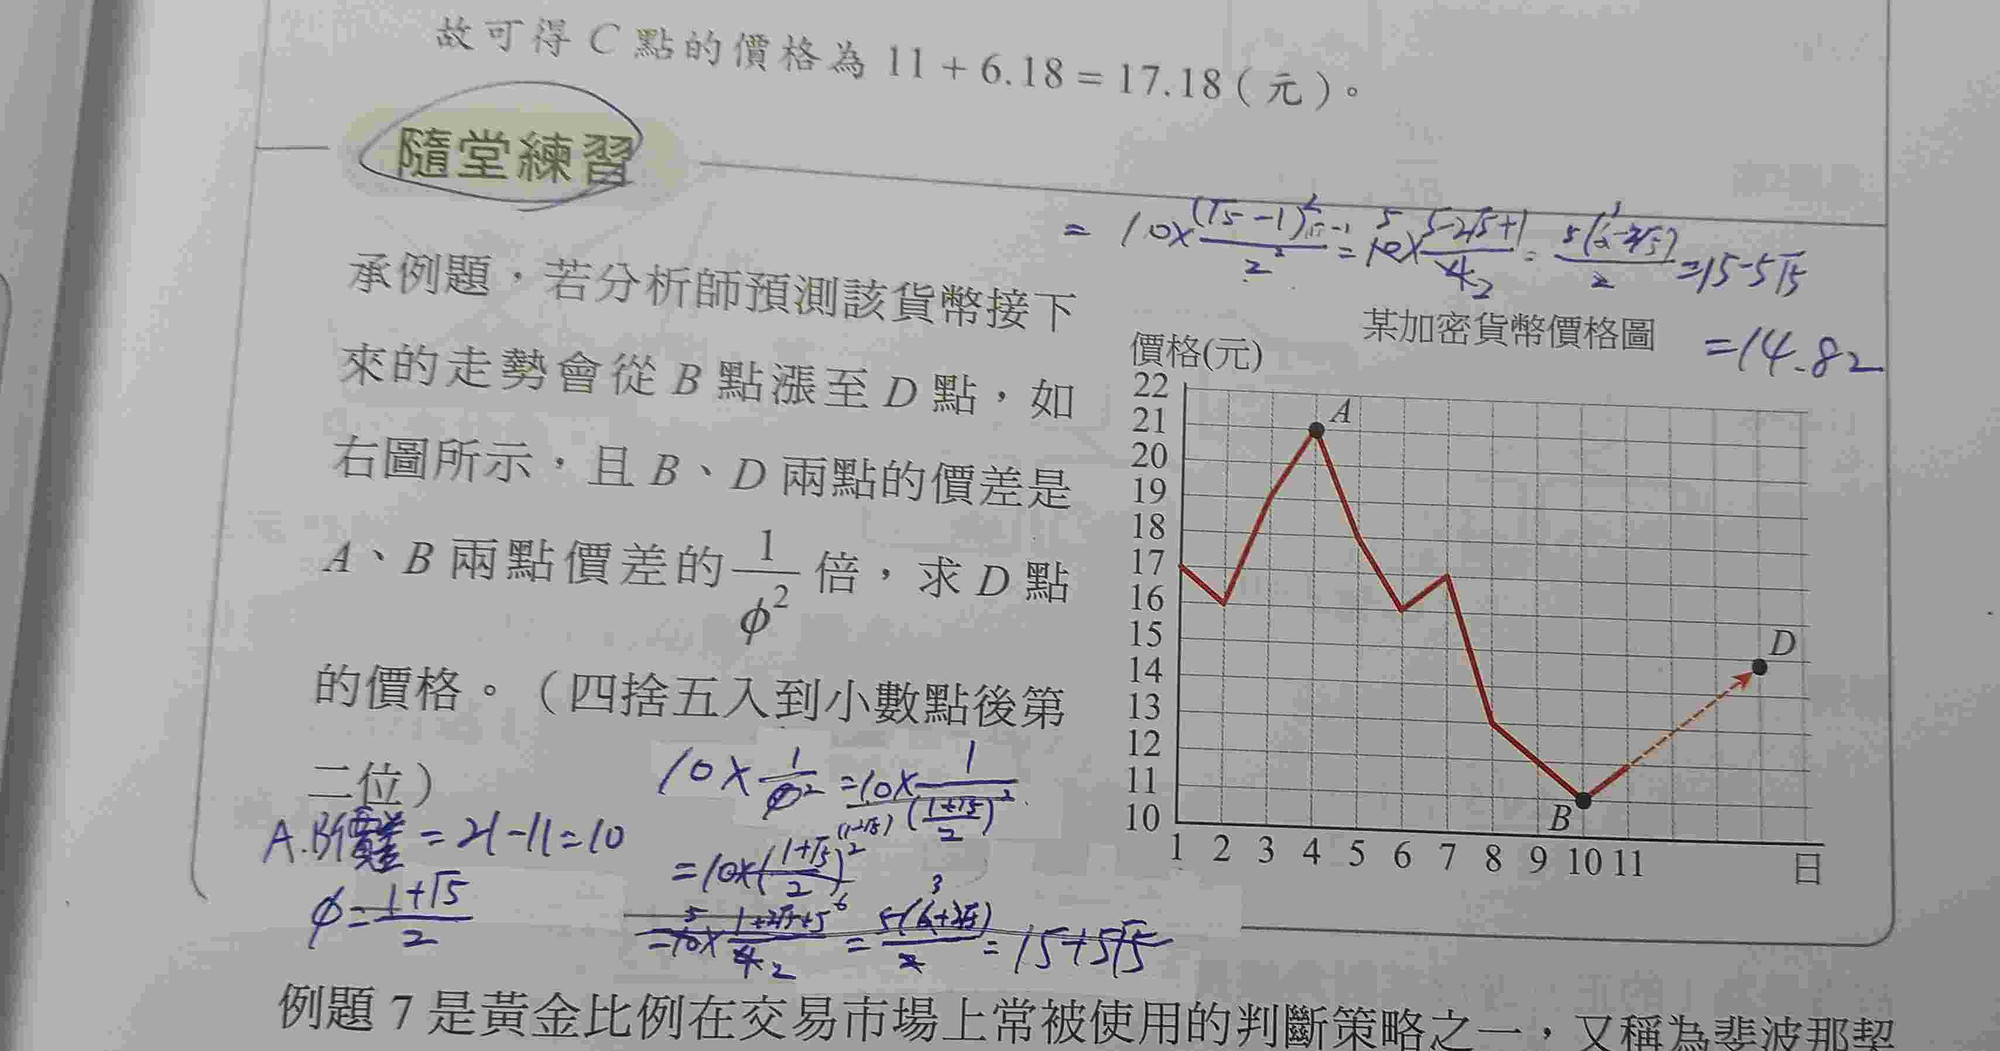 故可得 C 點的價格為 11 + 6.18 = 17.18 ( 元 )。
隨堂練習
= 10×(√5-1)²/2² = 10×(5-2√5+1)/4 = 5(6-2√5)/2 = 15-5√5
= 14.82
承例題，若分析師預測該貨幣接下
來的走勢會從 B 點漲至 D 點，如
右圖所示，且 B、D 兩點的價差是
A、B 兩點價差的 1/ϕ² 倍，求 D 點
的價格。（四捨五入到小數點後第
二位）
某加密貨幣價格圖
價格(元)
22
21
20
19
18
17
16
15
14
13
12
11
10
A
B
D
1 2 3 4 5 6 7 8 9 10 11 日
A.B價差 = 21-11=10
ϕ = (1+√5)/2
10×1/ϕ² = 10×1/((1+√5)/2)²
= 10×((1+√5)/2)²
= 10×(1+2√5+5)/4 = 5(6+2√5)/2 = 15+5√5
例題 7 是黃金比例在交易市場上常被使用的判斷策略之一，又稱為斐波那契